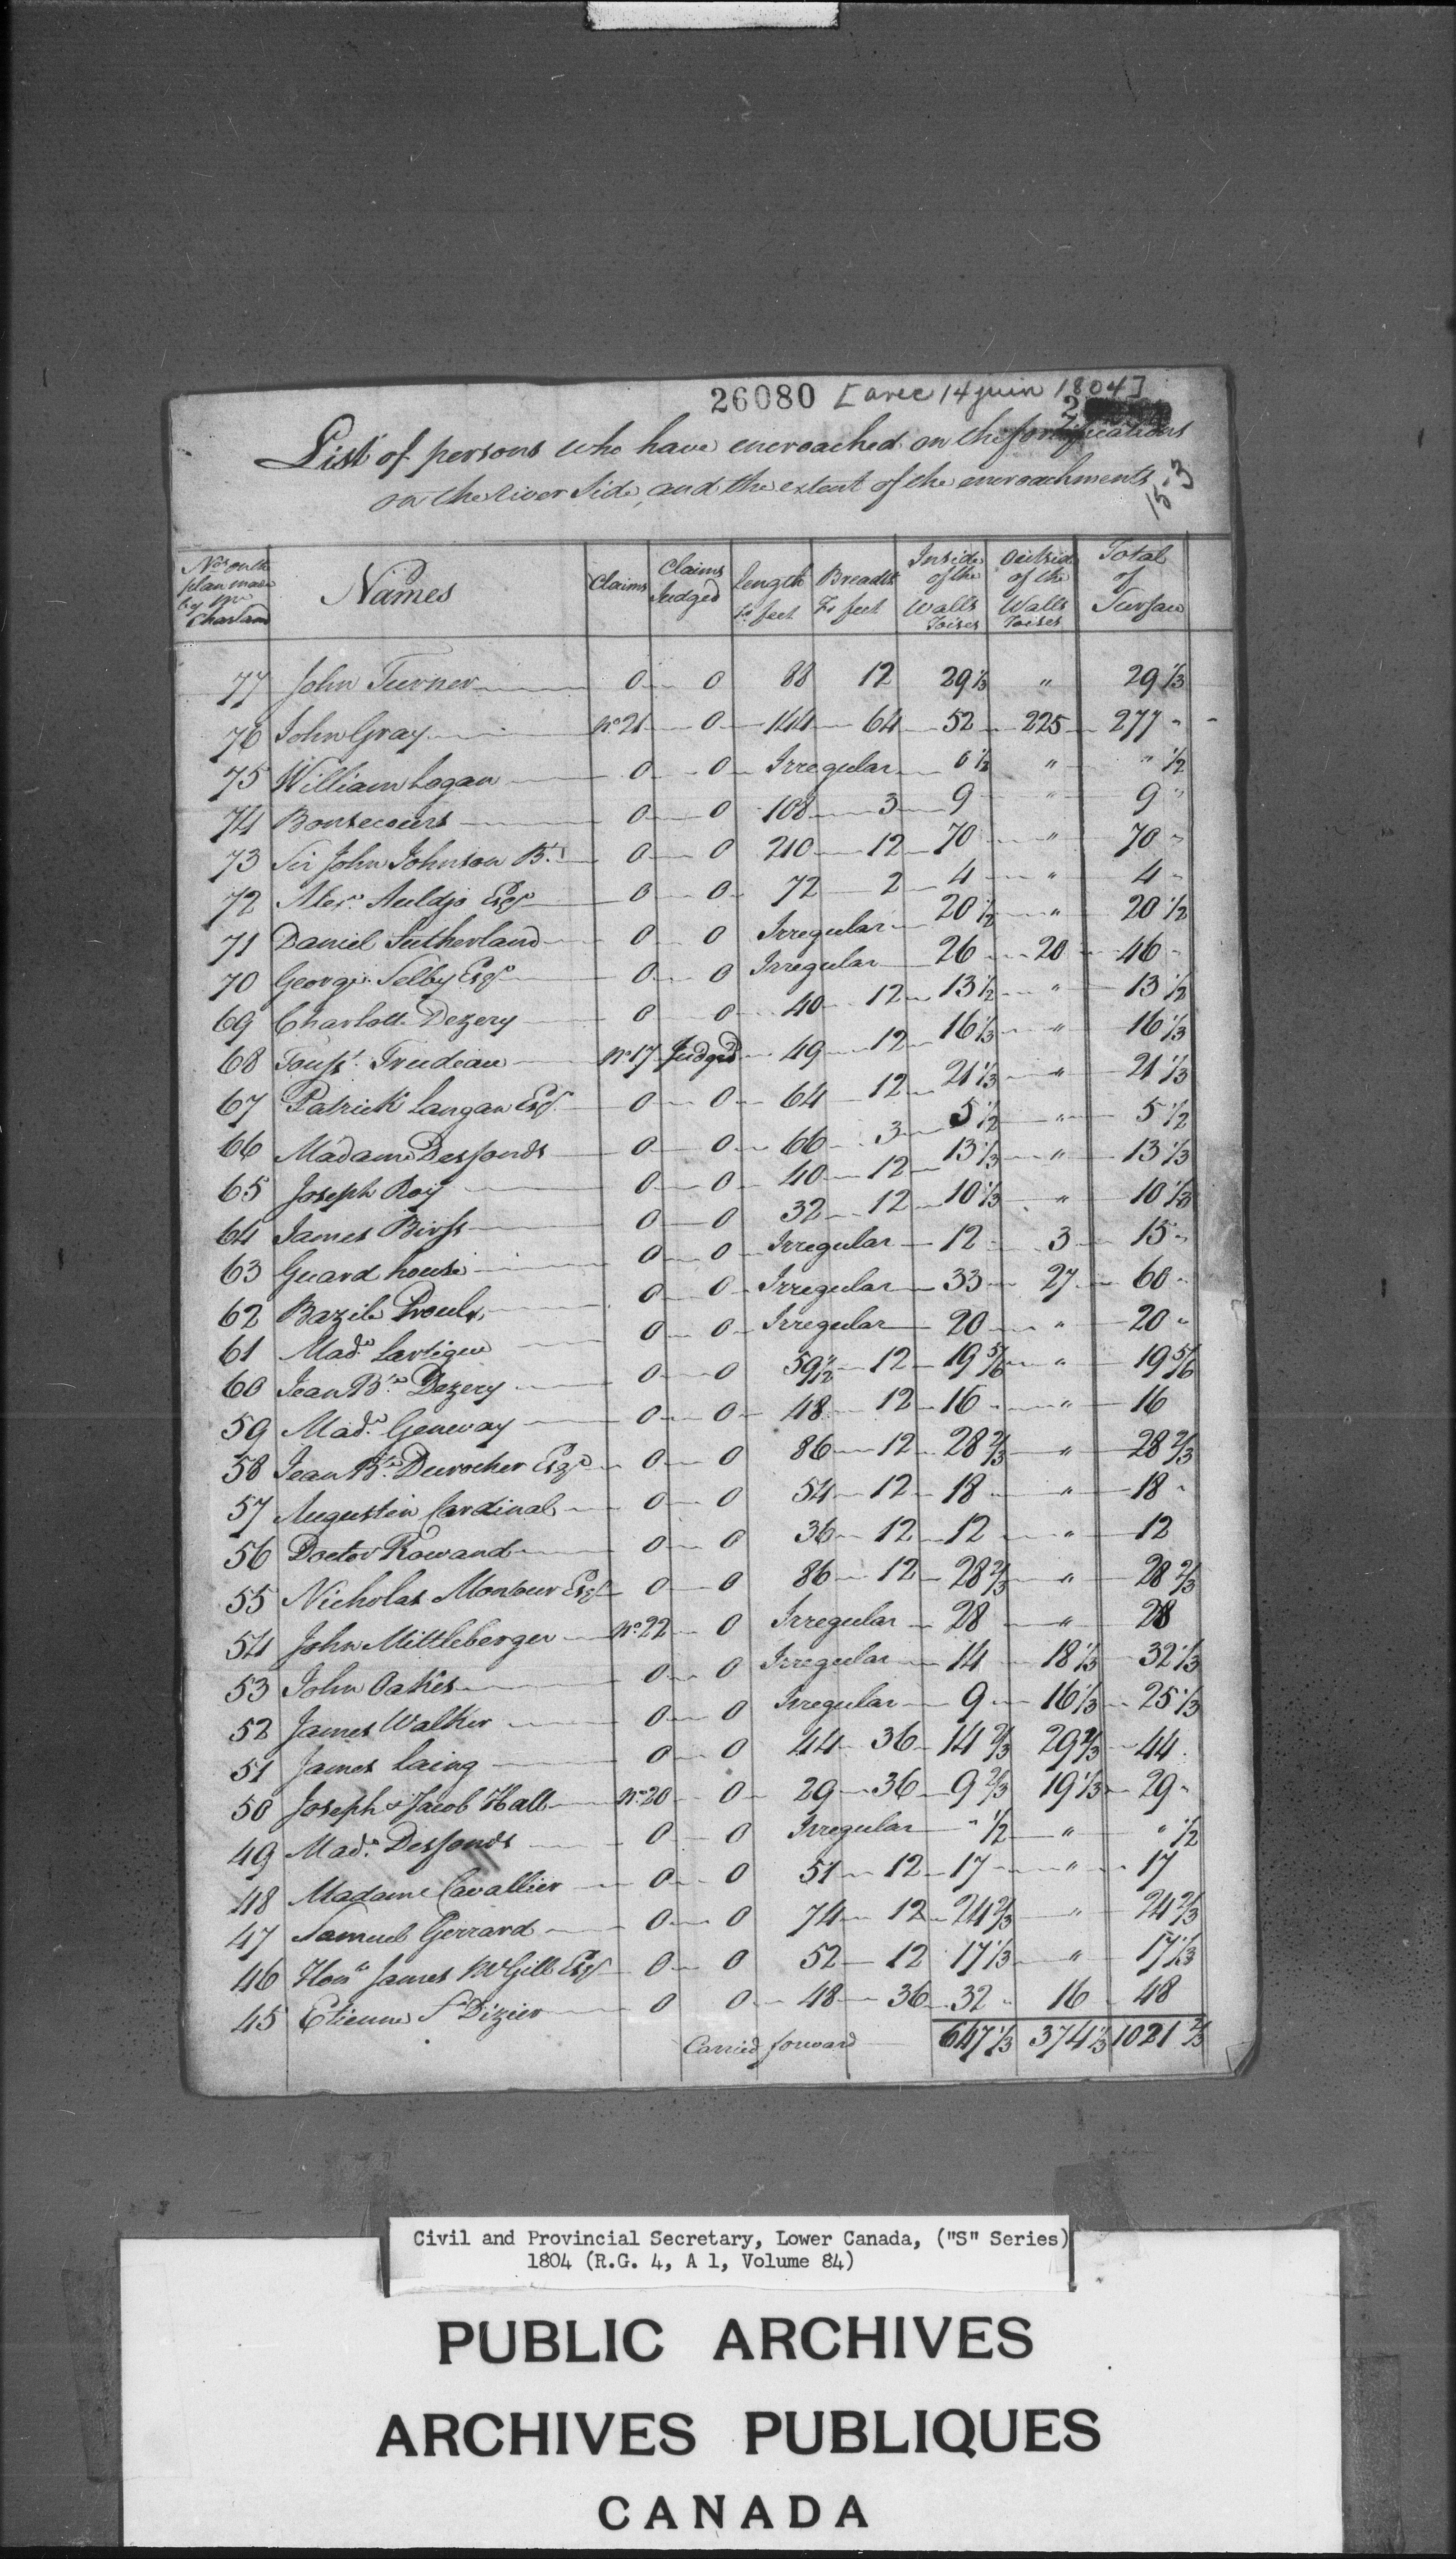 26080 [avec 14 juin 1804]
2
List of persons who have encroached on the fortifications
on the River Side, and the extent of the encroachments
15-3
Nos on the plan made by Mr Charland | Names | Claims | Claims Judged | length Fr feet | Breadth Fr feet | Inside of the Walls Toises | Outside of the Walls Toises | Total of Surface
77 John Turner 0 0 88 12 29 1/3 " 29 1/3
76 John Gray No 21 0 144 64 52 225 277 "
75 William Logan 0 0 Irregular 0 1/2 " " 1/2
74 Bonsecours 0 0 108 3 9 " 9 "
73 Sir John Johnson Bt. 0 0 210 12 70 " 70 "
72 Alexr. Auldjo Esqr 0 0 72 2 4 " 4 "
71 Daniel Sutherland 0 0 Irregular 20 1/2 " 20 1/2
70 George Selby Esqr 0 0 Irregular 26 20 46 "
69 Charlotte Dezery 0 0 40 12 13 1/2 " 13 1/2
68 Tousst. Trudeau No 17 Judged 49 12 16 1/3 " 16 1/3
67 Patrick Langan Esqr 0 0 64 12 21 1/3 " 21 1/3
66 Madame Desfonds 0 0 66 3 5 1/2 " 5 1/2
65 Joseph Roy 0 0 40 12 13 1/3 " 13 1/3
64 James Birss 0 0 32 12 10 1/3 " 10 1/3
63 Guard house 0 0 Irregular 12 3 15 "
62 Bazile Proulx 0 0 Irregular 33 27 60 "
61 Made. Lartigue 0 0 Irregular 20 " 20 "
60 Jean Bte. Dezery 0 0 59 1/2 12 19 5/6 " 19 5/6
59 Made. Geneway 0 0 48 12 16 " 16
58 Jean Bte. Durocher Esqr 0 0 86 12 28 2/3 " 28 2/3
57 Augustin Cardinal 0 0 54 12 18 " 18 "
56 Doctor Rowand 0 0 36 12 12 " 12
55 Nicholas Montour Esqr 0 0 86 12 28 2/3 " 28 2/3
54 John Mittleberger No 22 0 Irregular 28 " 28
53 John Oakes 0 0 Irregular 14 18 1/3 32 1/3
52 James Walker 0 0 Irregular 9 16 1/3 25 1/3
51 James Laing 0 0 44 36 14 2/3 29 2/3 44
50 Joseph & Jacob Hall No 20 0 29 36 9 2/3 19 1/3 29 "
49 Made. Desfonds 0 0 Irregular " 1/2 " " 1/2
48 Madame Cavallier 0 0 51 12 17 " 17
47 Samuel Gerrard 0 0 74 12 24 2/3 " 24 2/3
46 Honle James McGill Esqr 0 0 52 12 17 1/3 " 17 1/3
45 Etienne St Dizier 0 0 48 36 32 16 48
Carried forward 647 1/3 374 1/3 1021 2/3
Civil and Provincial Secretary, Lower Canada, ("S" Series)
1804 (R.G. 4, A 1, Volume 84)
PUBLIC ARCHIVES
ARCHIVES PUBLIQUES
CANADA